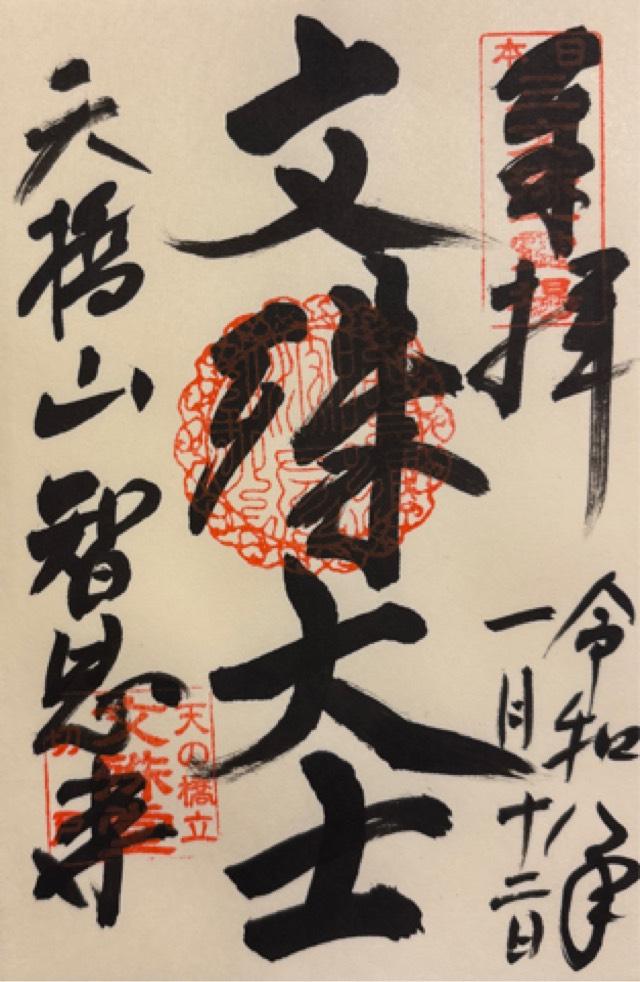 奉拝
令和八年
一月十二日
文殊大士
天橋山智恩寺
日本
天の橋立
切戸
文殊堂